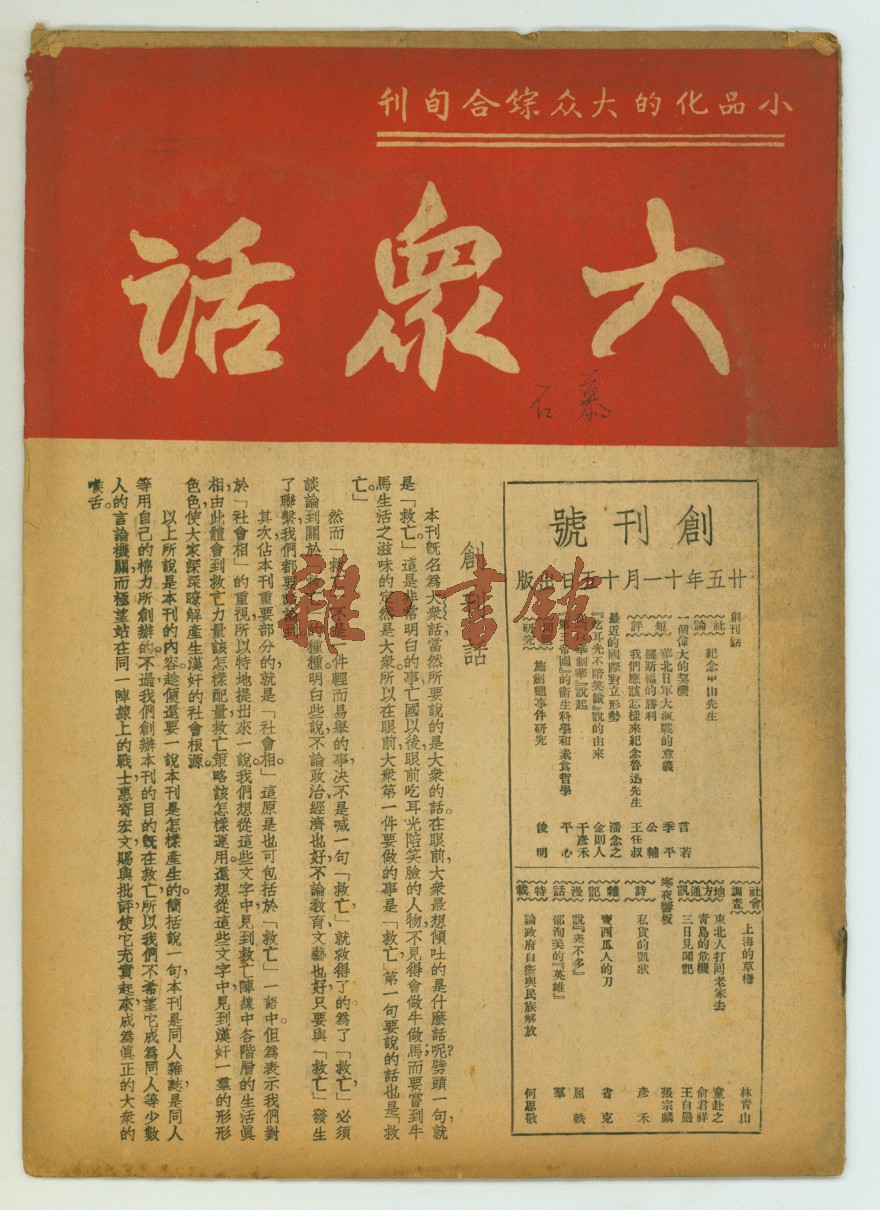 小品化的大众綜合旬刊
大眾話
慕石
創刊號
廿五年十一月十五日出版
創刊話
社論
紀念中山先生 言若
一個偉大的契機 季平
短評
華北日軍大演戰的意義
羅斯福的勝利 公輔
我們應該怎樣來紀念魯迅先生 王任叔
最近的國際對立形勢 潘念之
『吃耳光不陪笑臉』說的由來 金則人
從『以華制華』說起 于彥禾
『第三帝國』的衛生科學和素食哲學 平心
研究
施劍翹事件研究 俊明
社會調查
上海的草棚 林青山
地方通訊
東北人打回老家去 童赴之
青島的危機 俞君祥
三日見聞記 王自嚴
寒夜響板 張宗麟
詩
私貨的凱歌 彥禾
雜記
賣西瓜人的刀 省克
漫話
說『差不多』 屈軼
邵洵美的『英雄』 羣
特載
論政府自衛與民族解放 何思敬
創刊話
本刊旣名爲大衆話，當然所要說的是大衆的話。在眼前，大衆最想傾吐的是什麽話呢？劈頭一句，就
是「救亡」，這是非常明白的事。亡國以後，眼前吃耳光陪笑臉的人物，不見得會做牛做馬；而要嘗到牛
馬生活之滋味的，定然是大衆。所以在眼前，大衆第一件要做的事是「救亡」，第一句要說的話也是「救
亡」。
然而「救亡」不是一件輕而易舉的事，决不是喊一句「救亡」，就救得了的。爲了「救亡」，必須
談論到關於「救亡」的種種。明白些說，不論政治、經濟也好，不論敎育、文藝也好，只要與「救亡」發生
了聯繫，我們都要談論到。
其次，佔本刊重要部分的，就是「社會相」。這原是也可包括於「救亡」一語中，但爲表示我們對
於「社會相」的重視，所以特地提出來一說。我們想從這些文字中見到救亡陣線中各階層的生活眞
相，由此體會到救亡力量該怎樣配量，救亡策略該怎樣運用。還想從這些文字中見到漢奸一羣的形形
色色，使大家深深瞭解產生漢奸的社會根源。
以上所說是本刊的內容，趁便還要一說本刊是怎樣產生的。簡括說一句，本刊是同人雜誌，是同人
等用自己的棉力所創辦的。不過我們創辦本刊的目的旣在救亡，所以我們不希望它成爲同人等少數
人的言論機關，而極望站在同一陣線上的戰士惠寄宏文，賜與批評，使它充實起來，成爲眞正的大衆的
喉舌。
雜·書館